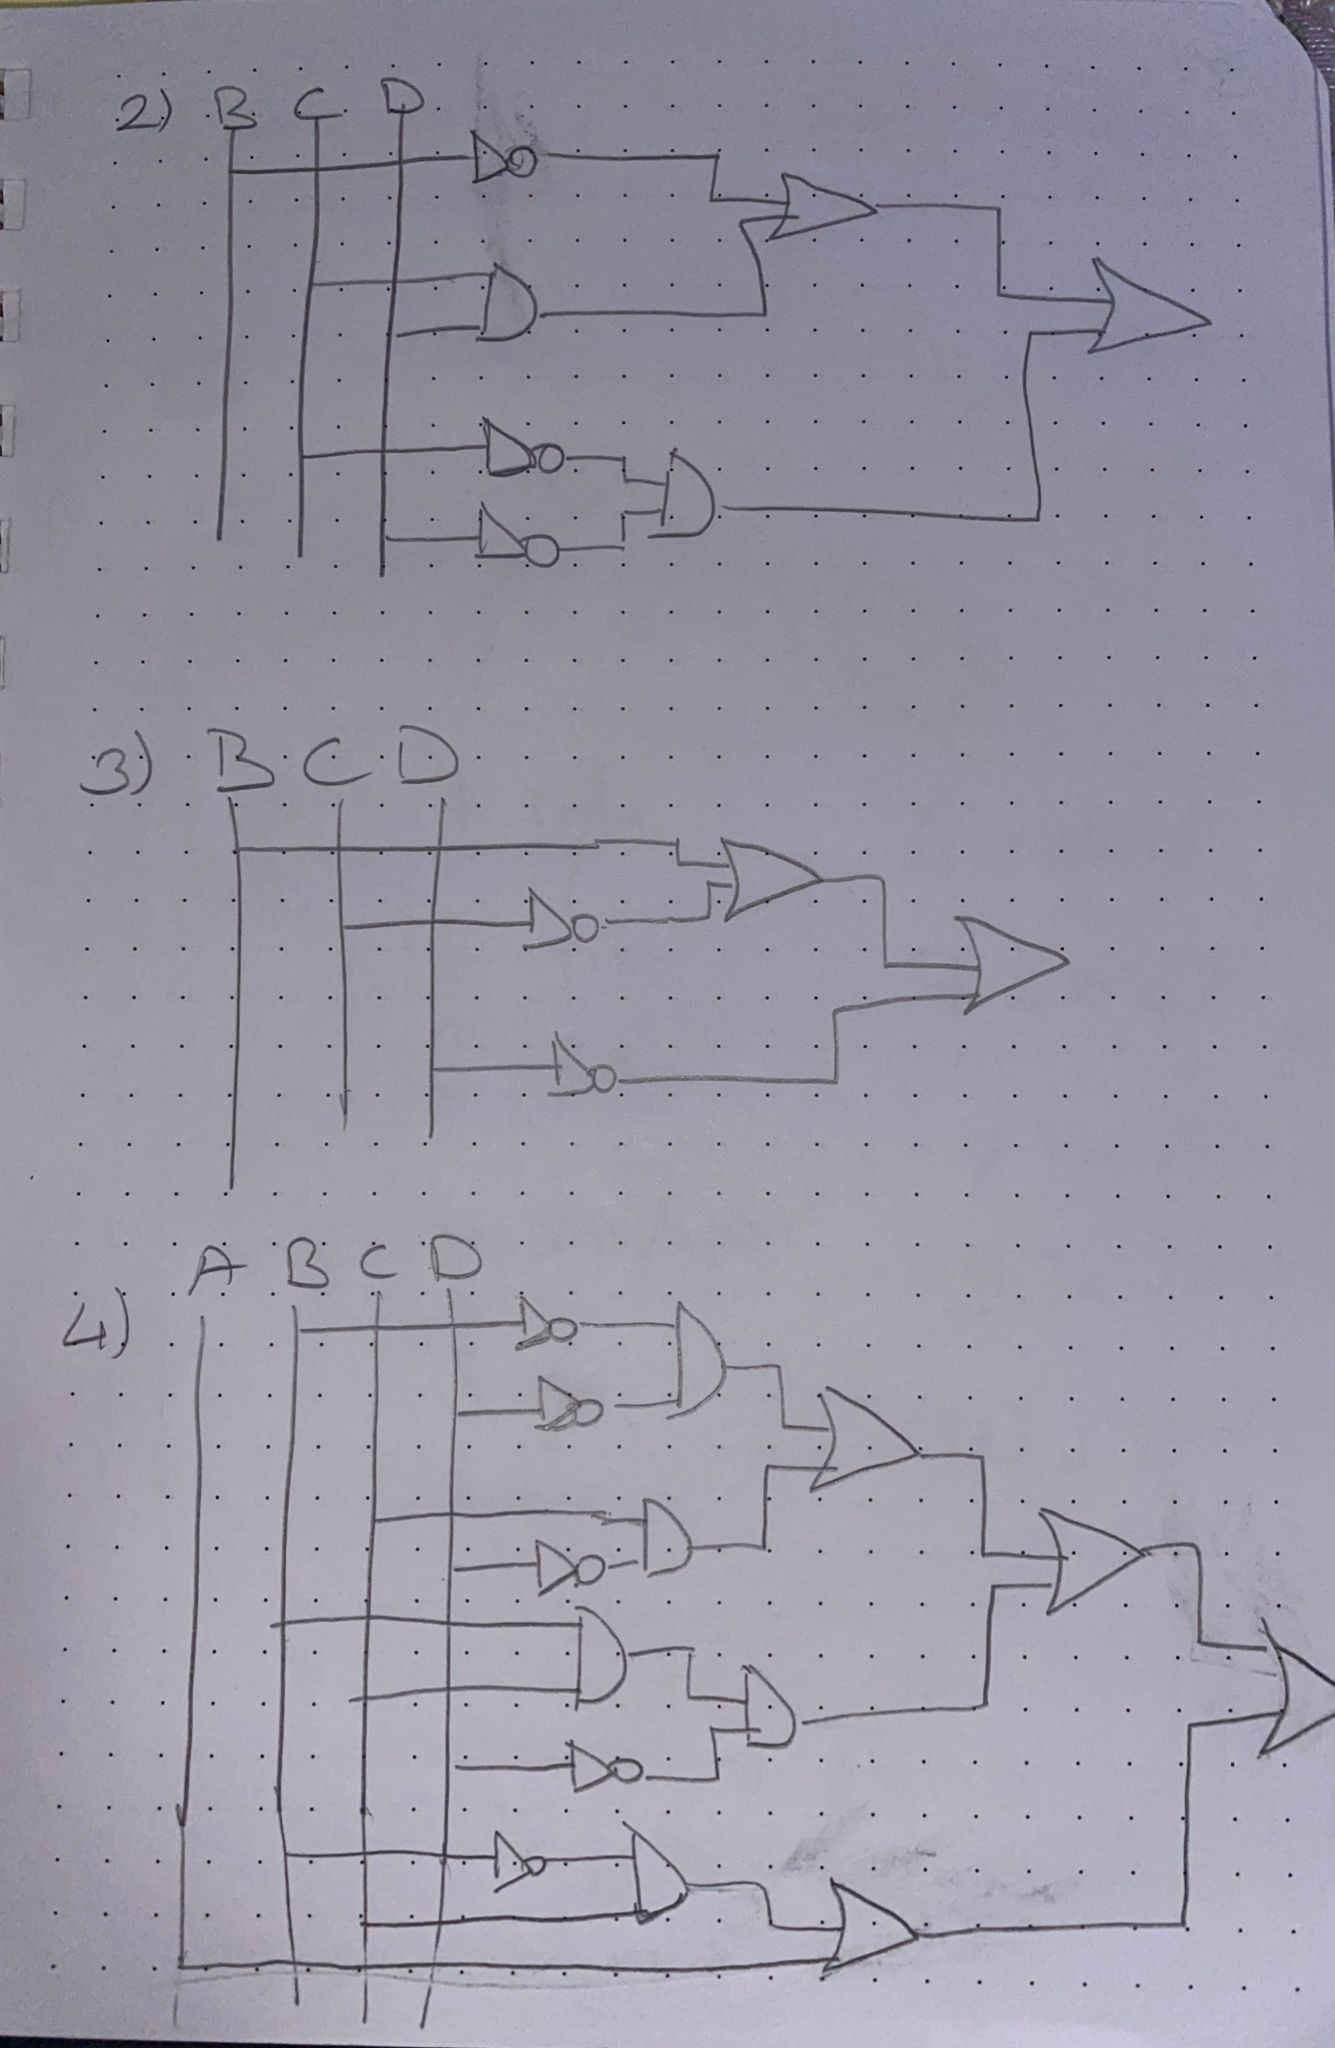 2) B C D
3) B C D
A B C D
4)